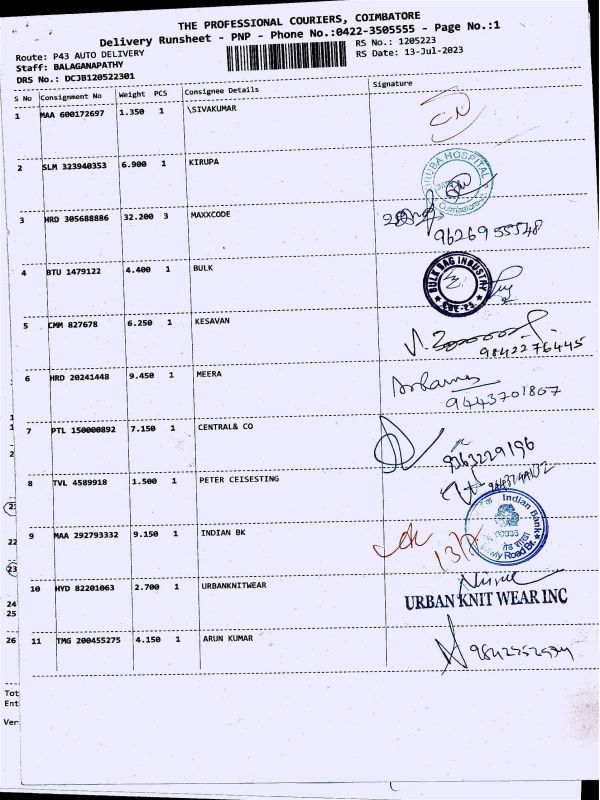 THE PROFESSIONAL COURIERS, COIMBATORE
Delivery Runsheet - PNP - Phone No.:0422-3505555 - Page No.:1
Route: P43 AUTO DELIVERY
RS No.: 1205223
Staff: BALAGANAPATHY
RS Date: 13-Jul-2023
DRS No.: DCJB120522301
S No Consignment No Weight PCS Consignee Details Signature
1 MAA 600172697 1.350 1 \SIVAKUMAR
2 SLM 323940353 6.900 1 KIRUPA
HOSPITAL
Coimbatore
3 HRD 305688886 32.200 3 MAXXCODE
9626955548
4 BTU 1479122 4.400 1 BULK
BULK BAG INDUSTRY
CBE-25
5 CMM 827678 6.250 1 KESAVAN
9842276445
6 HRD 20241448 9.450 1 MEERA
9443701807
7 PTL 150000892 7.150 1 CENTRAL& CO
9363229196
8 TVL 4589918 1.500 1 PETER CEISESTING
9 MAA 292793332 9.150 1 INDIAN BK
Indian Bank
00035
Road Br.
10 HYD 82201063 2.700 1 URBANKNITWEAR
URBAN KNIT WEAR INC
11 TMG 200455275 4.150 1 ARUN KUMAR
22
23
24
25
26
Tot
Ent
Ver